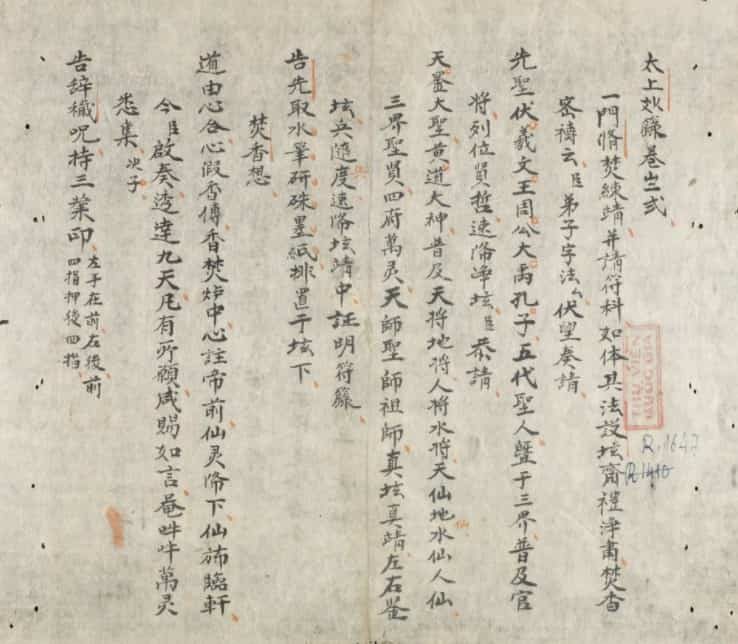 太上籙卷弍
一門脩焚練靖并請符科如体具法設坛齋禮淨肅焚香
密禱云臣弟子字法厶伏望奏請
先聖伏羲文王周公大禹孔子五代聖人曁于三界普及官
将列位賢哲速降净坛臣恭請
天罡大聖黄道大神普及天将地将人将水将天仙地仙水仙人仙
三界聖賢四府萬灵天師聖師祖師真坛真靖左右
坛兵隨度速降坛靖中証明符籙
告先取水筆研硃墨紙排置于坛下
焚香想
道由心合心假香傳香焚炉中心註帝前仙灵降下仙斾臨軒
今臣啟奏逕達九天凡有所願咸賜如言菴吽吽萬灵
悉集次子
告辞穢呪持三業印左手在前左後前
四指押後四指
THƯ VIỆN
QUỐC GIA
R.1647
R.1410